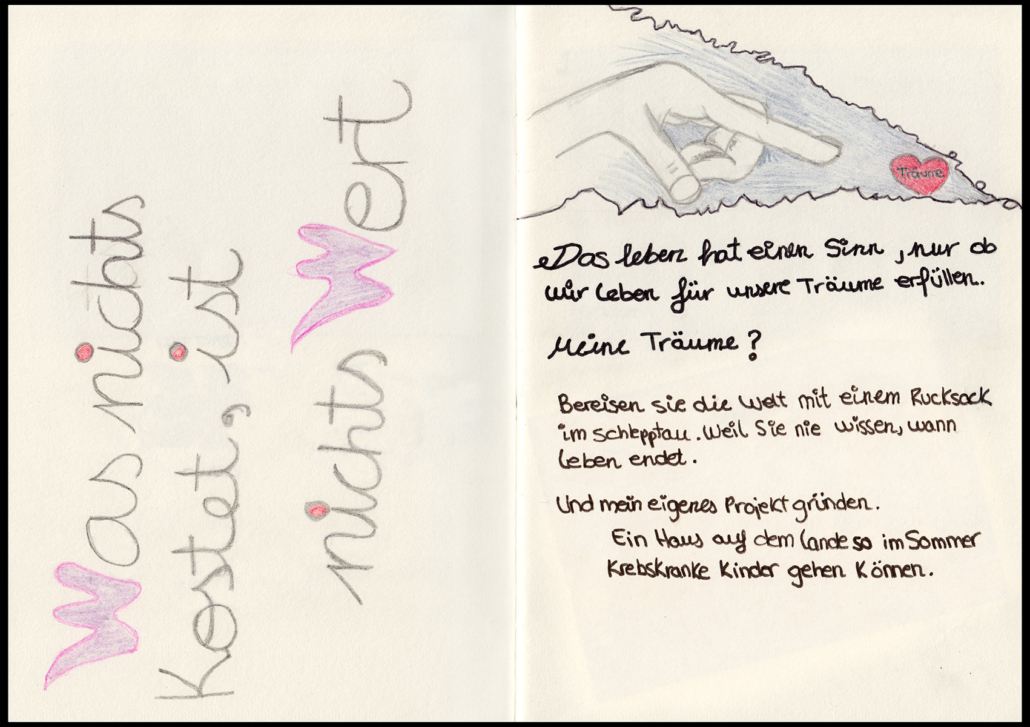 Was nichts
kostet, ist
nichts Wert
Träume
Das leben hat einen Sinn, nur ob
wir leben für unsere Träume erfüllen.
Meine Träume?
Bereisen sie die Welt mit einem Rucksack
im schlepptau. Weil Sie nie wissen, wann
leben endet.
Und mein eigenes Projekt gründen.
Ein Haus auf dem lande so im Sommer
Krebskranke Kinder gehen Können.